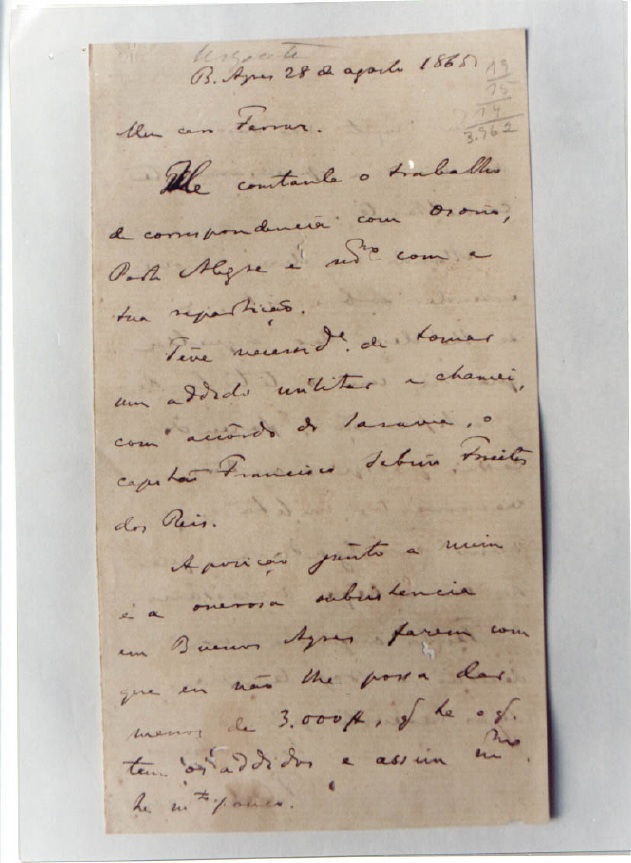 Urgente
B. Ayres 28 de agosto 1865
19
15
14
3.962
Meu caro Ferraz.
He constante o trabalho
de correspondencia com Osorio,
Porto Alegre e mmo com a
tua repartição.
Tive necesside. de tomar
um addido militar e chamei,
com accôrdo do Saraiva, o
capitão Francisco Freitas
dos Reis.
A posição junto a mim
e a onerosa subsistencia
em Buenos Ayres fazem com
que eu não lhe possa dar
menos de 3.000$, q he o q.
tem os addidos e assim mmo.
he mto pouco.